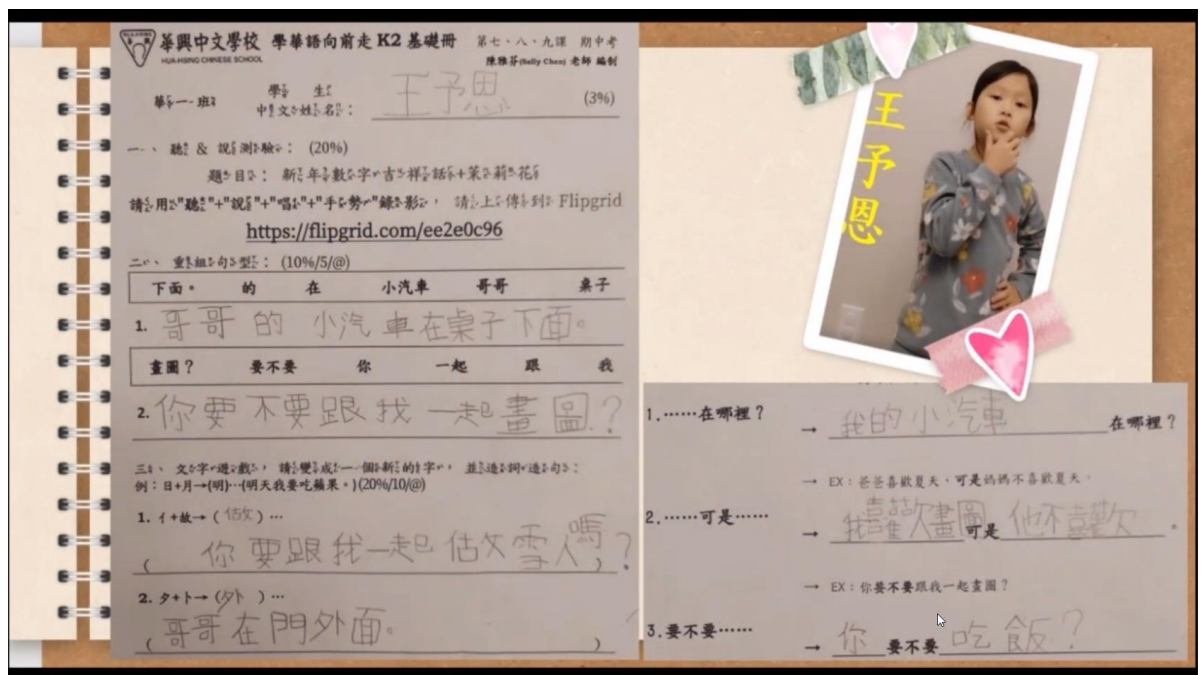 華興中文學校 學華語向前走 K2 基礎冊 第七、八、九課 期中考
HUA-HSING CHINESE SCHOOL
陳雅芬(Sally Chen) 老師 編制
華一-班 學 生
中文姓名: 王予恩 (3%)
一、 聽 & 說測驗: (20%)
題目: 新年數字吉祥話+茉莉花
請用"聽"+"說"+"唱"+"手勢"錄影, 請上傳到 Flipgrid
https://flipgrid.com/ee2e0c96
二、 重組句型: (10%/5/@)
下面。 的 在 小汽車 哥哥 桌子
1. 哥哥的小汽車在桌子下面。
畫圖? 要不要 你 一起 跟 我
2. 你要不要跟我一起畫圖?
三、 文字遊戲, 請變成一個新的字, 並造詞造句:
例:日+月→(明)…(明天我要吃蘋果。)(20%/10/@)
1. 亻+故→(做)…
( 你要跟我一起做雪人嗎? )
2. 夕+卜→(外)…
( 哥哥在門外面。 )
王予恩
1.……在哪裡? → 我的小汽車 在哪裡?
→ EX:爸爸喜歡夏天,可是媽媽不喜歡夏天。
2.……可是…… → 我喜歡畫圖 可是 他不喜歡 。
→ EX:你要不要跟我一起畫圖?
3.要不要…… → 你 要不要 吃飯?